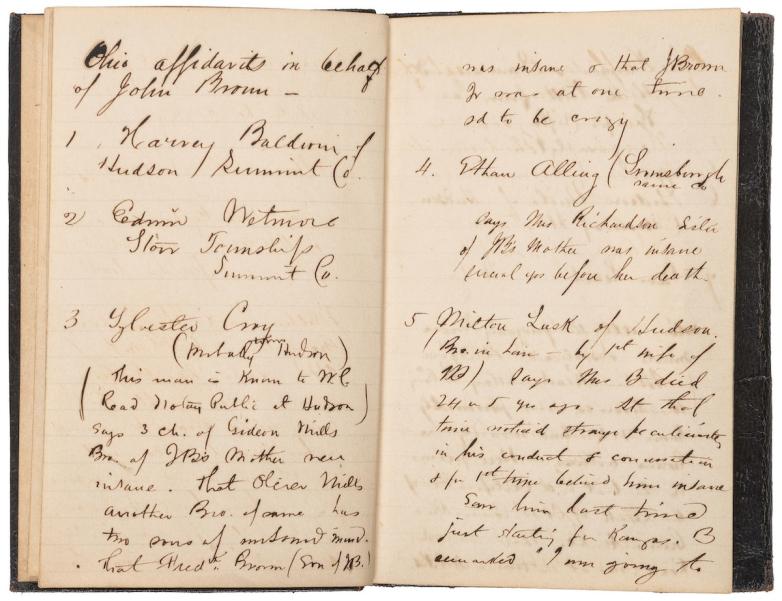 Ohio affidavits in behalf
of John Brown —
1 Harvey Baldwin of
Hudson Summit Co.
2 Edwin Wetmore
Stow Township
Summit Co.
3 Sylvester
(Probably from Hudson)
(This man is known to W.C.
Read Notary Public at Hudson)
says 3 ch. of Gideon Mills
Bro. of JB's Mother were
insane. That Oliver Mills
another Bro. of same has
two sons of unsound mind.
That Fredk Brown (Son of JB.)
was insane & that J Brown
Jr was at one time
sd to be crazy
4. Ethan Alling (
same co
says Mrs Richardson Sister
of JB's Mother was insane
several yrs before her death.
5 Milton Lusk of Hudson.
(Bro. in law — by 1st wife of
JB) Says Mrs B died
24 or 5 yrs ago. At that
time noticed strange peculiarities
in his conduct & conversation
& for 1st time belived him insane
Saw him last time
just starting for Kansas. B
remarked "I am going to